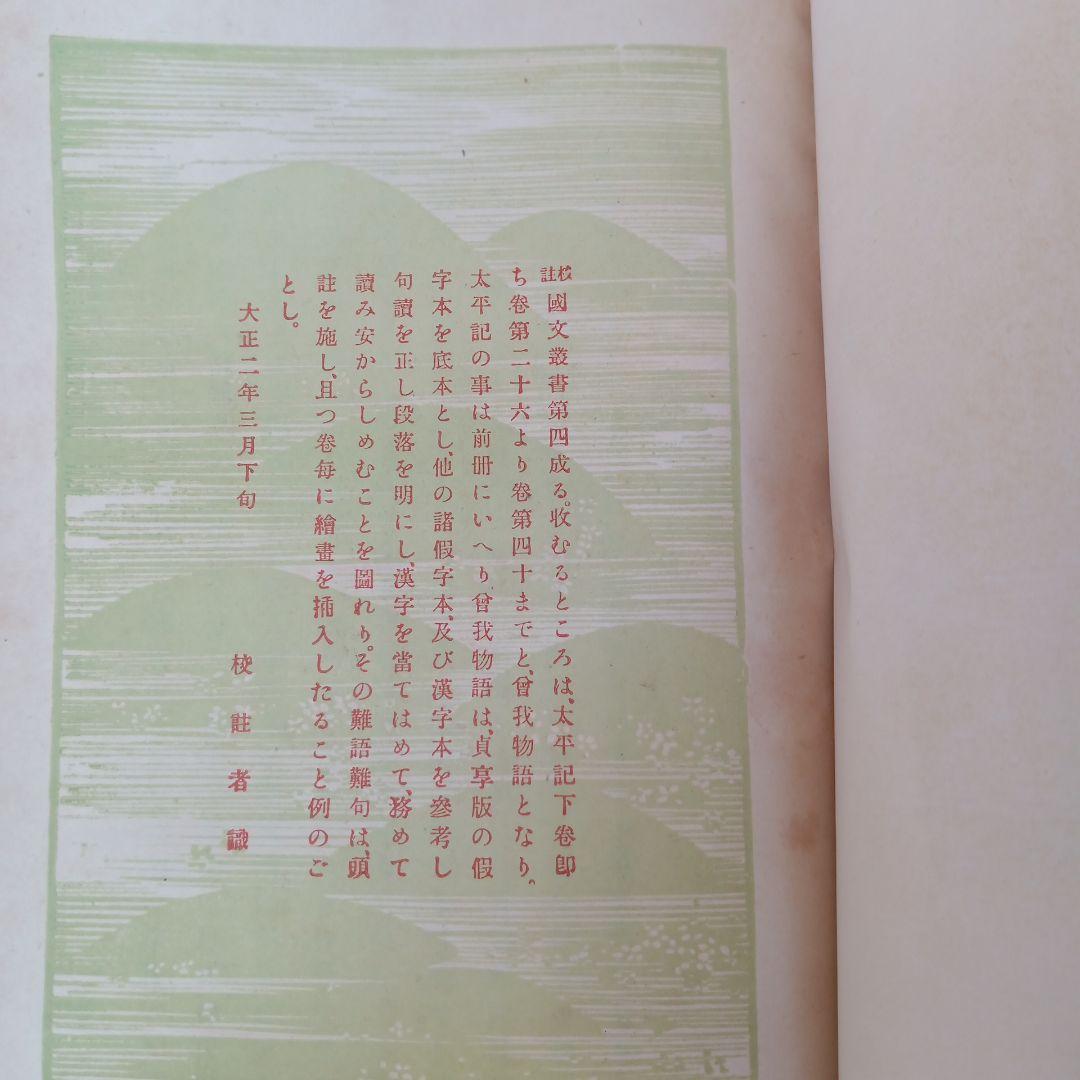 校註國文叢書第四成る。收むるところは、太平記下卷卽
ち卷第二十六より卷第四十までと、曾我物語となり。
太平記の事は前册にいへり、曾我物語は、貞享版の假
字本を底本とし、他の諸假字本、及び漢字本を參考し
句讀を正し段落を明にし、漢字を當てはめて、務めて
讀み安からしめむことを圖れり。その難語難句は、頭
註を施し、且つ卷每に繪畫を插入したること例のご
とし。
大正二年三月下旬
校註者識